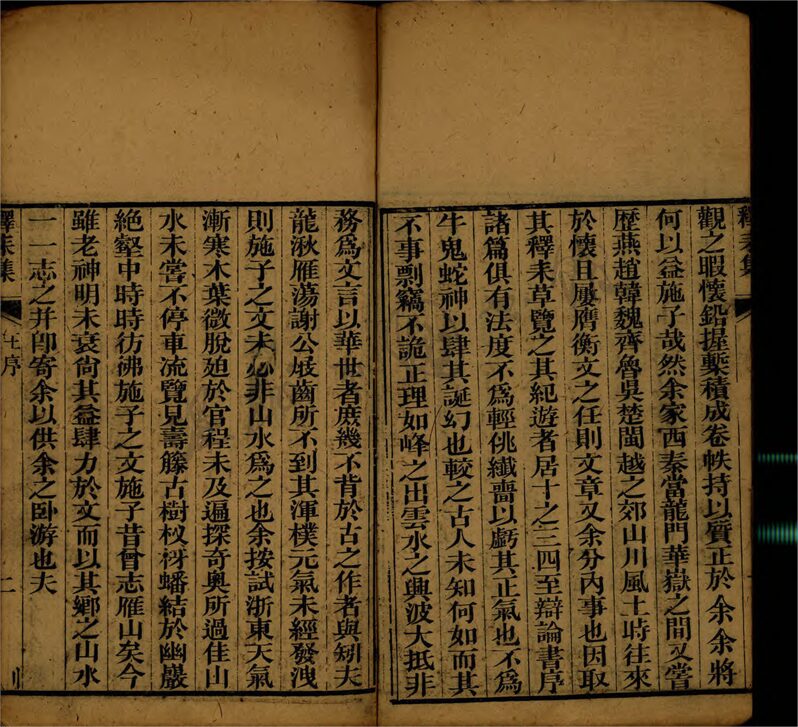 釋耒集
觀之暇懷鉛握槧積成卷帙持以質正於余余將
何以益施子哉然余家西秦當龍門華嶽之間又嘗
歴燕趙韓魏齊魯吳楚閩越之郊山川風土時往來
於懷且屢膺衡文之任則文章又余分内事也因取
其釋耒草覽之其紀遊者居十之三四至辯論書序
諸篇俱有法度不爲輕佻纖嗇以虧其正氣也不爲
牛鬼蛇神以肆其誕幻也較之古人未知何如而其
不事剽竊不詭正理如峰之出雲水之與波大抵非
務爲文言以華世者庶幾不背於古之作者與矧夫
龍湫雁蕩謝公屐齒所不到其渾樸元氣未經發洩
則施子之文未必非山水爲之也余按試浙東天氣
漸寒木葉微脫廹於官程未及遍探奇奧所過佳山
水未嘗不停車流覽見壽籐古樹杈枒蟠結於幽巖
絶壑中時時彷彿施子之文施子昔曾志雁山矣今
雖老神明未衰尙其益肆力於文而以其鄉之山水
一一志之并卽寄余以供余之卧游也夫
釋耒集
序
二